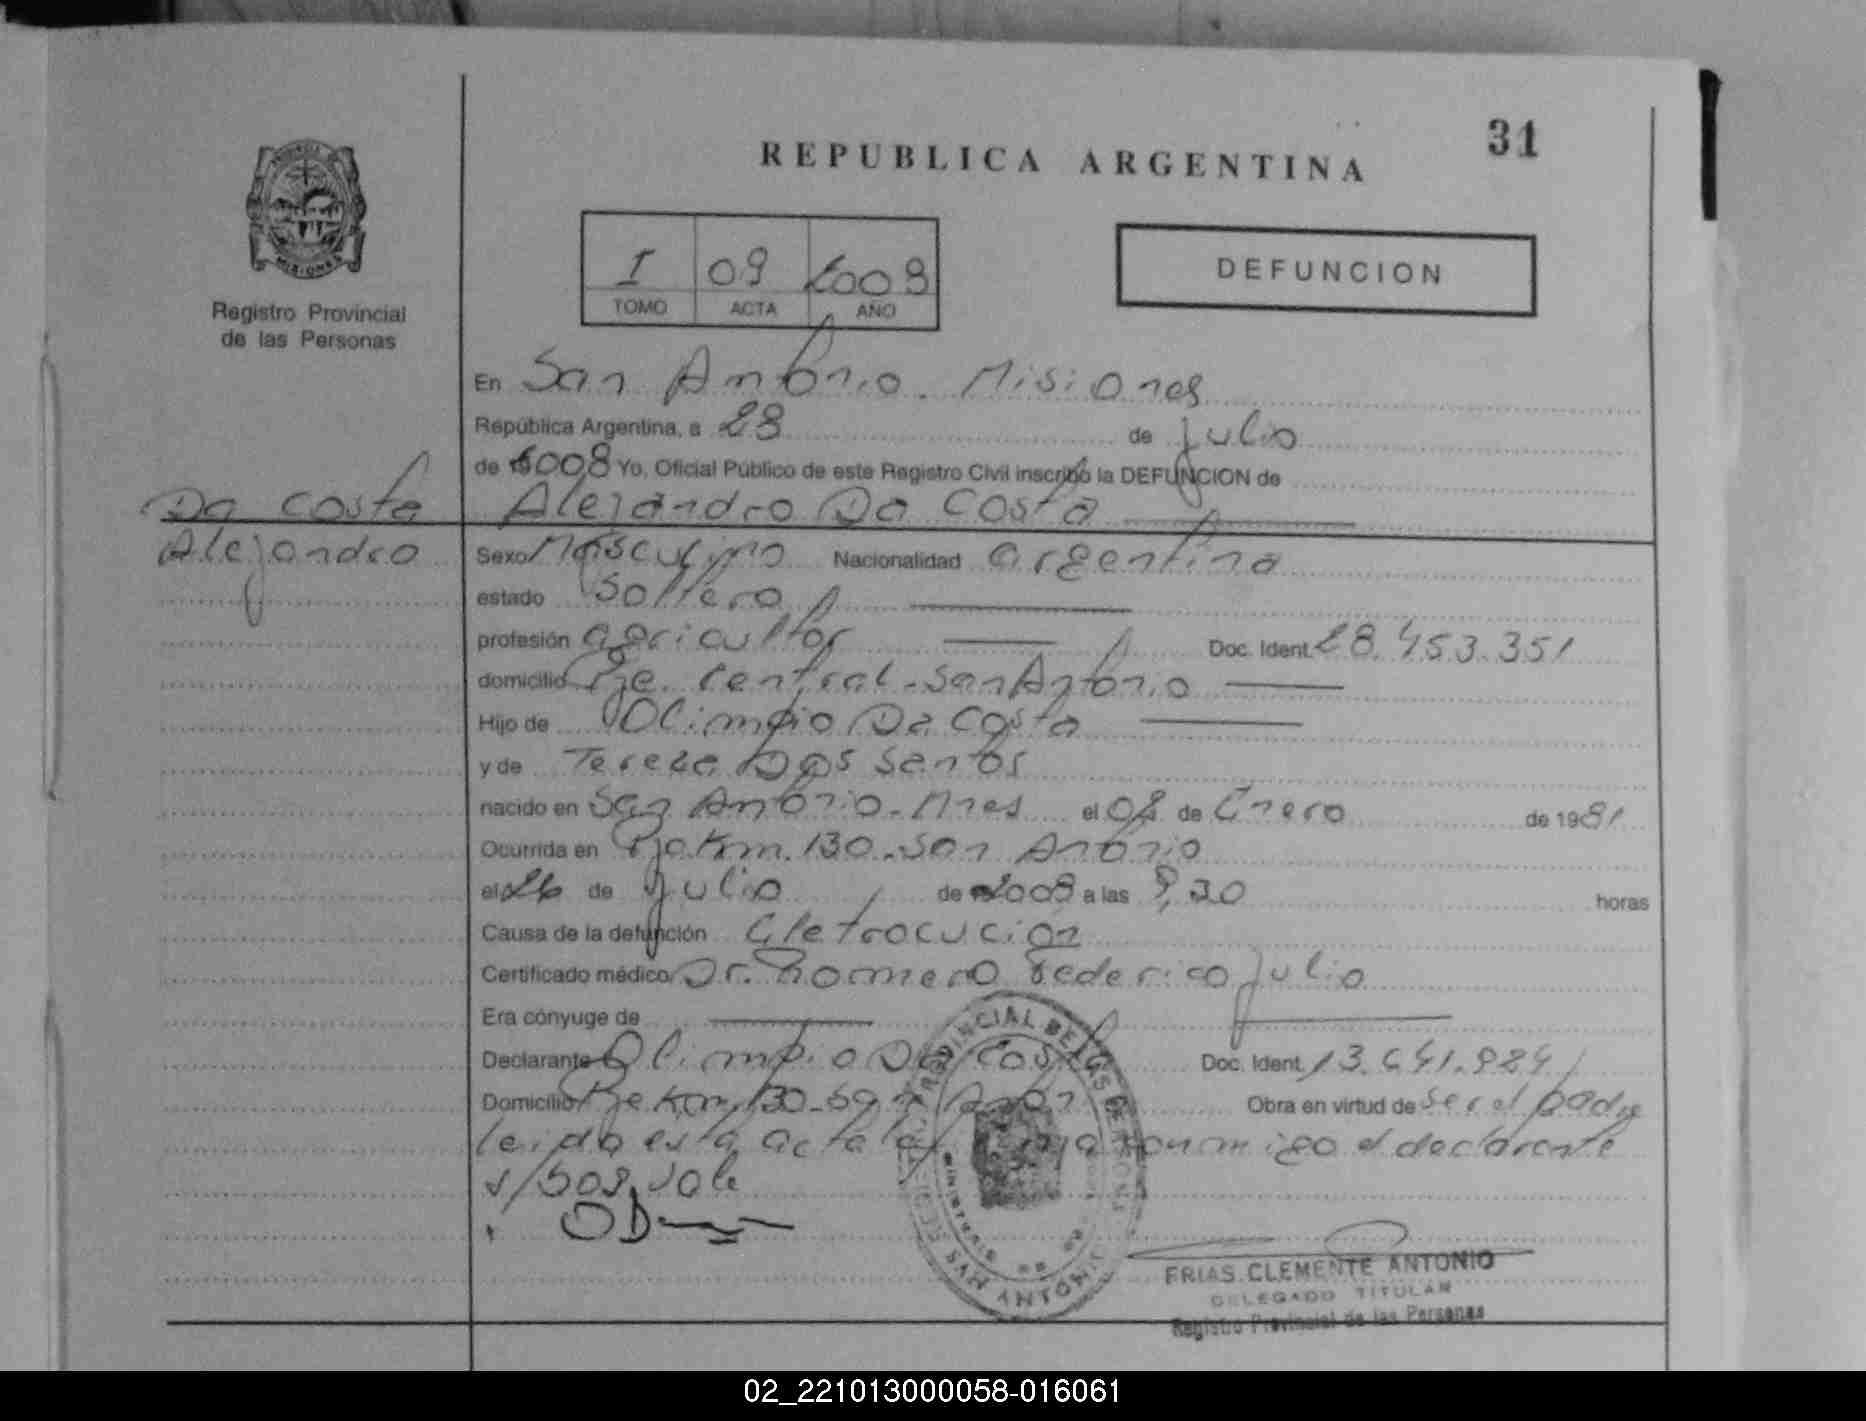 31
REPUBLICA ARGENTINA
PROVINCIA DE
MISIONES
Registro Provincial
de las Personas
I 09 2009
TOMO ACTA AÑO
DEFUNCION
En San Antonio. Misiones
República Argentina, a 28 de julio
de 2009 Yo, Oficial Público de este Registro Civil inscribo la DEFUNCION de
Da Costa
Alejandro
Alejandro Da Costa
Sexo Masculino Nacionalidad argentina
estado Soltero
profesión agricultor Doc. Ident. 28.453.351
domicilio Pje. Central - San Antonio
Hijo de Olimpio Da Costa
y de Tereza Dos Santos
nacido en San Antonio - Mnes el 02 de Enero de 1981
Ocurrida en Pje Km. 130 - San Antonio
el 26 de julio de 2009 a las 9,30 horas
Causa de la defunción Eletrocución
Certificado médico Dr. Romero Federico Julio
Era cónyuge de
Declarante Olimpio Da Costa Doc. Ident. 13.641.984
Domicilio Pje Km 130 - San Anton Obra en virtud de ser el padre
leida esta acta la firma conmigo el declarante
s/ vale
OD
FRIAS CLEMENTE ANTONIO
DELEGADO TITULAR
Registro Provincial de las Personas
02_221013000058-016061